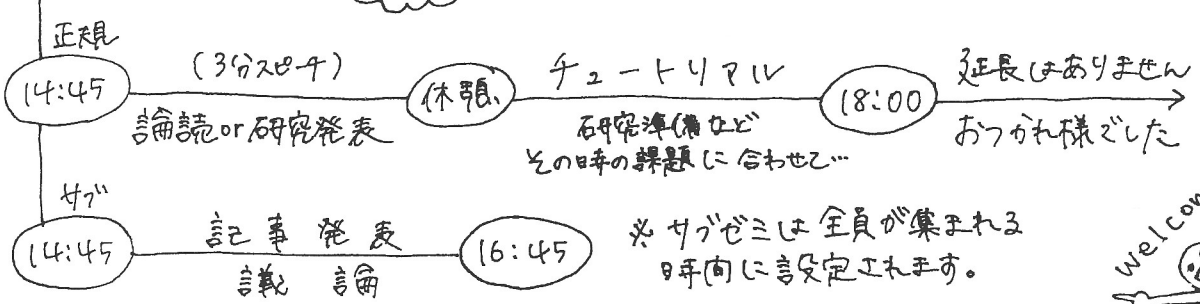 正規
14:45
(3分スピーチ)
論読or研究発表
休憩
チュートリアル
研究準備など
その時の課題に合わせて…
18:00
延長はありません
おつかれ様でした
サブ
14:45
記事発表
議論
16:45
※サブゼミは全員が集まれる
時間に設定されます。
Welcom